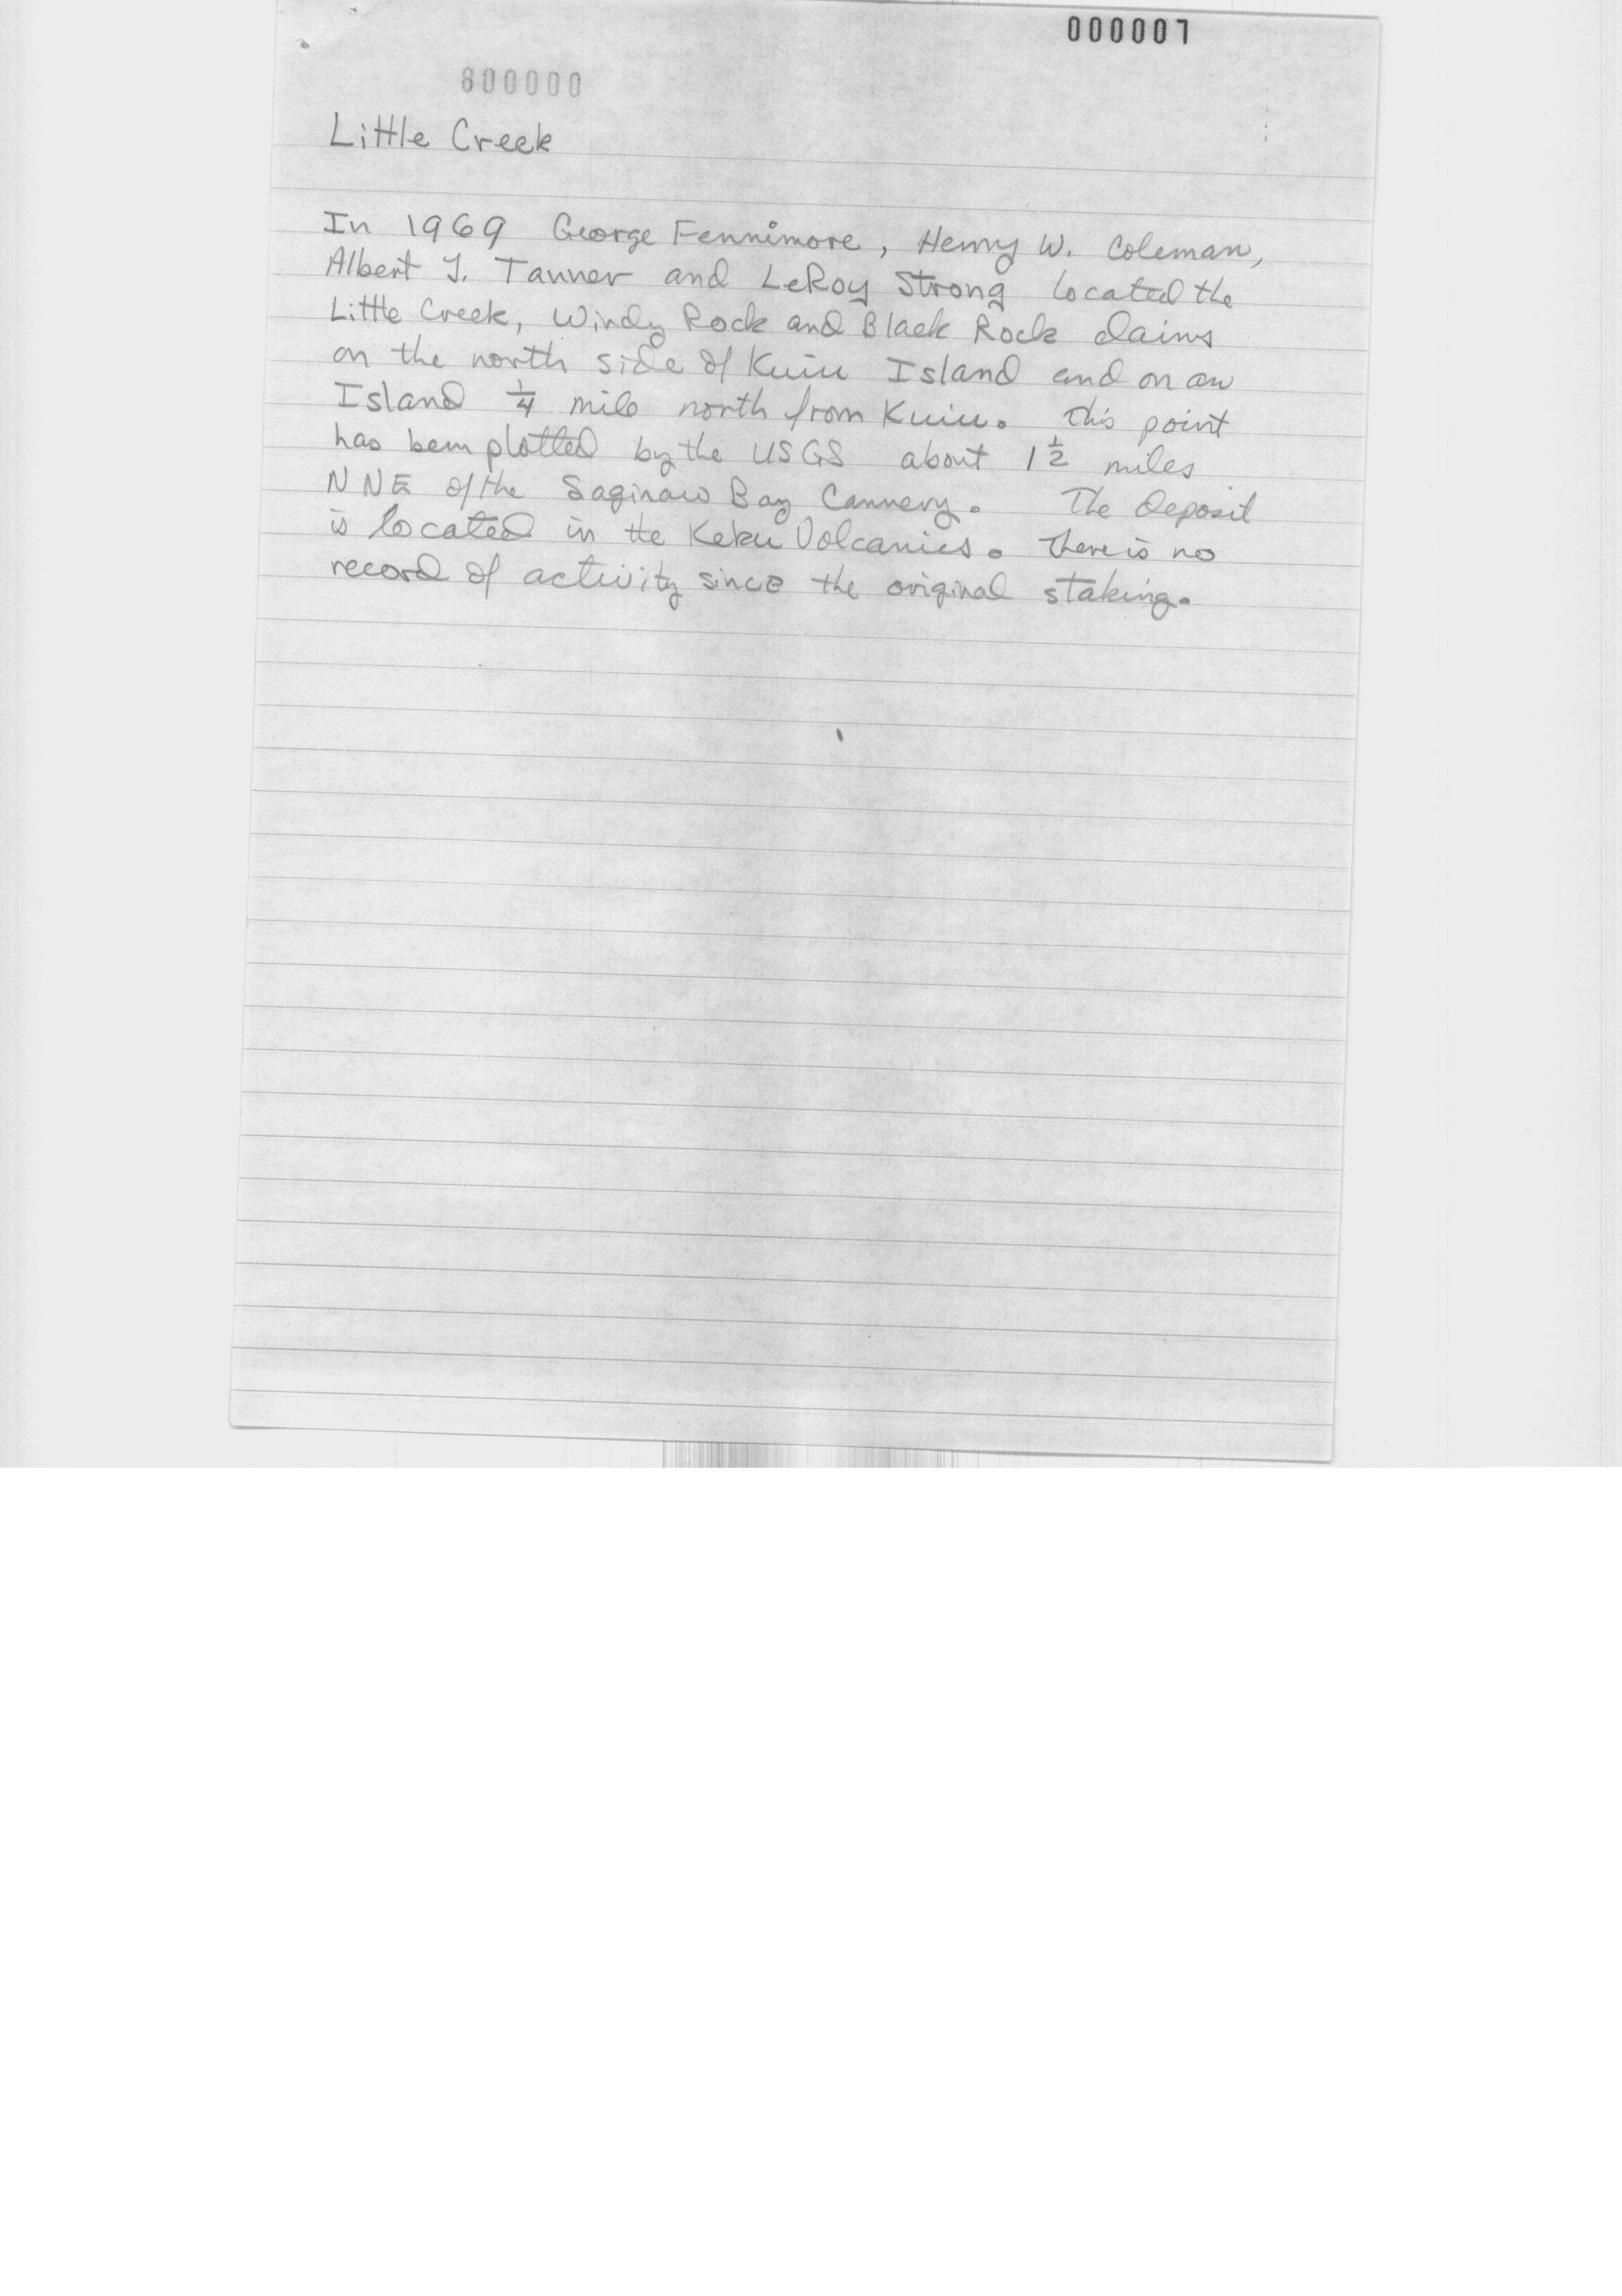 000007
800000
Little Creek
In 1969 George Fennimore, Henry W. Coleman,
Albert J. Tanner and LeRoy Strong located the
Little Creek, Windy Rock and Black Rock claims
on the north side of Kuiu Island and on an
Island 1/4 mile north from Kuiu. This point
has been plotted by the USGS about 1 1/2 miles
NNE of the Saginaw Bay Cannery. The deposit
is located in the Keku Volcanics. There is no
record of activity since the original staking.